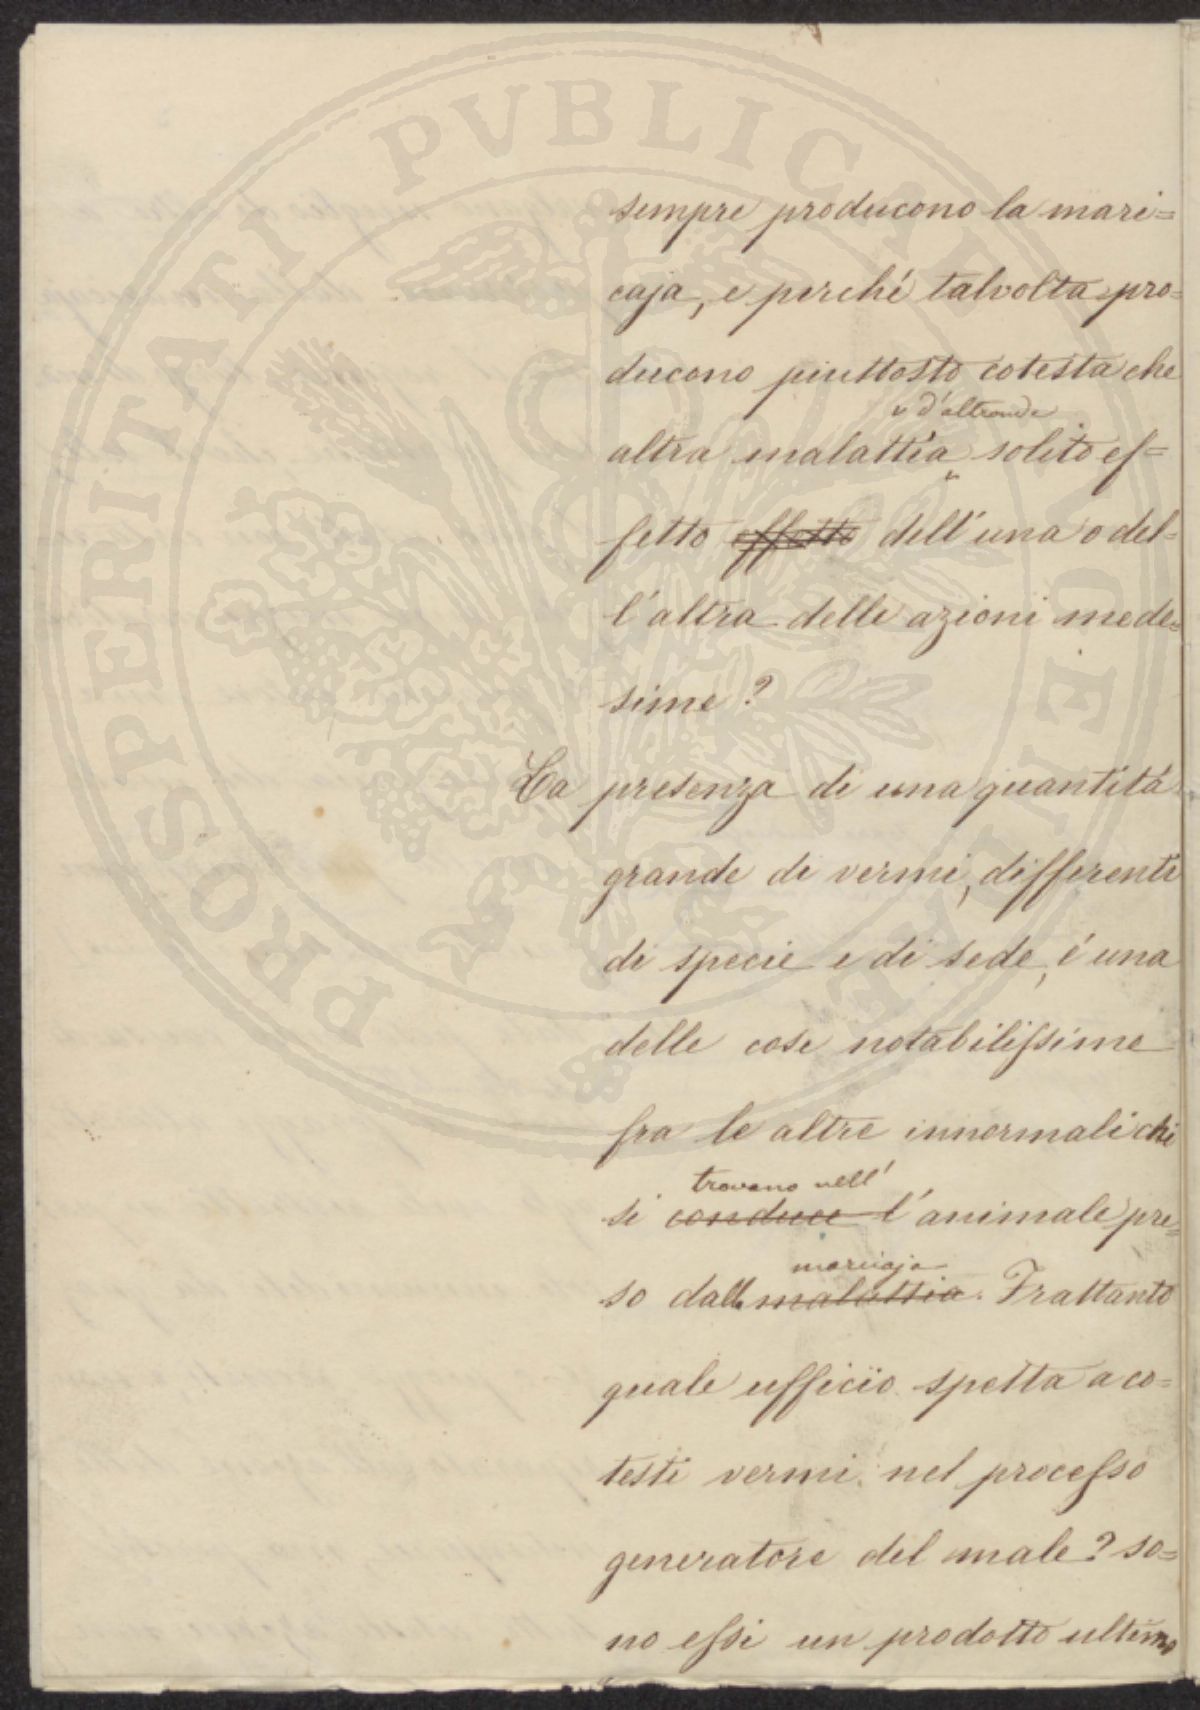 PROSPERITATI PVBLICAE
sempre producono la mari=
caja, e perché talvolta pro=
ducono piuttosto cotesta che
e d'altronde
altra malattia solito ef=
fetto effetto dell'una o del=
l'altra delle azioni mede=
sime?
La presenza di una quantitá
grande di vermi, differenti
di specie e di sede, é una
delle cose notabilissime
fra le altre innormali che
trovano nell'
si conduce l'animale pre=
marciaja
so dalla malattia. Frattanto
quale ufficio spetta a co=
testi vermi nel processo
generatore del male? so=
no essi un prodotto ultimo